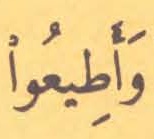 وَأَطِيعُوا۟